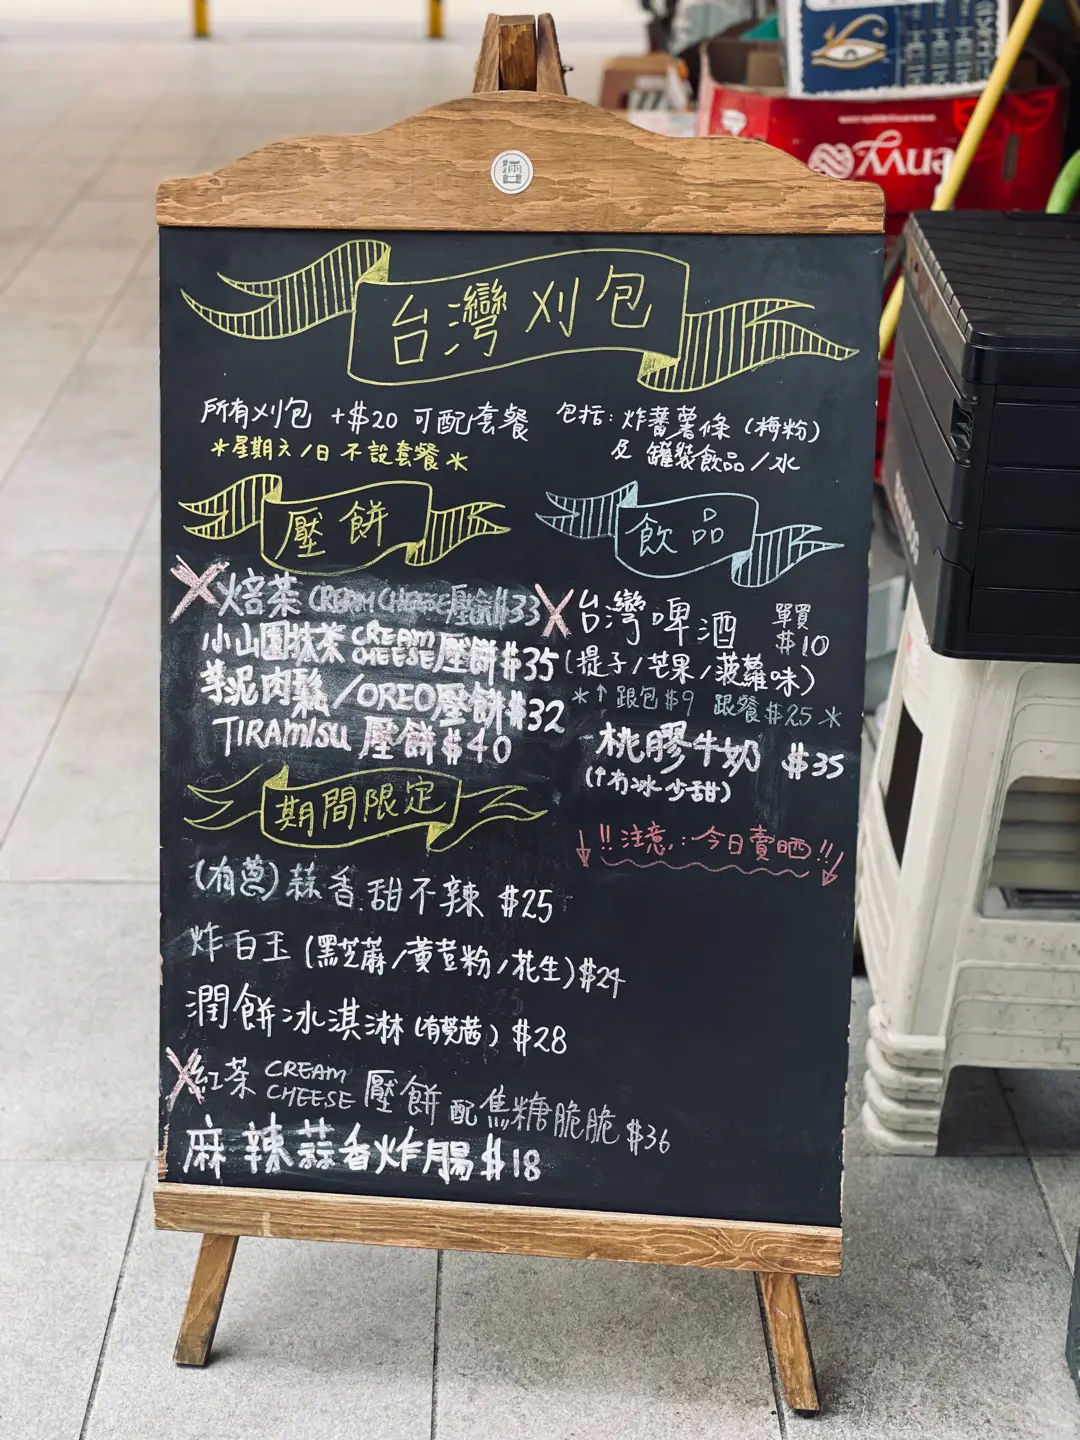 台灣刈包
所有刈包 +$20 可配套餐
*星期六/日 不設套餐*
包括: 炸蕃薯條 (梅粉)
及 罐裝飲品/水
壓餅
焙茶 CREAM CHEESE 壓餅 $33
小山園抹茶 CREAM CHEESE 壓餅 $35
芋泥肉鬆/OREO壓餅 $32
TIRAMISU 壓餅 $40
飲品
台灣啤酒 單買 $10
(提子/芒果/菠蘿味)
*↑ 跟包 $9 跟餐 $25 *
桃膠牛奶 $35
(↑冇冰 少甜)
↓!! 注意: 今日賣晒!!↓
期間限定
(有蔥) 蒜香甜不辣 $25
炸白玉 (黑芝蔴/黃荳粉/花生) $24
潤餅冰淇淋 (有芫茜) $28
紅茶 CREAM CHEESE 壓餅 配焦糖脆脆 $36
麻辣蒜香炸腸 $18
envy